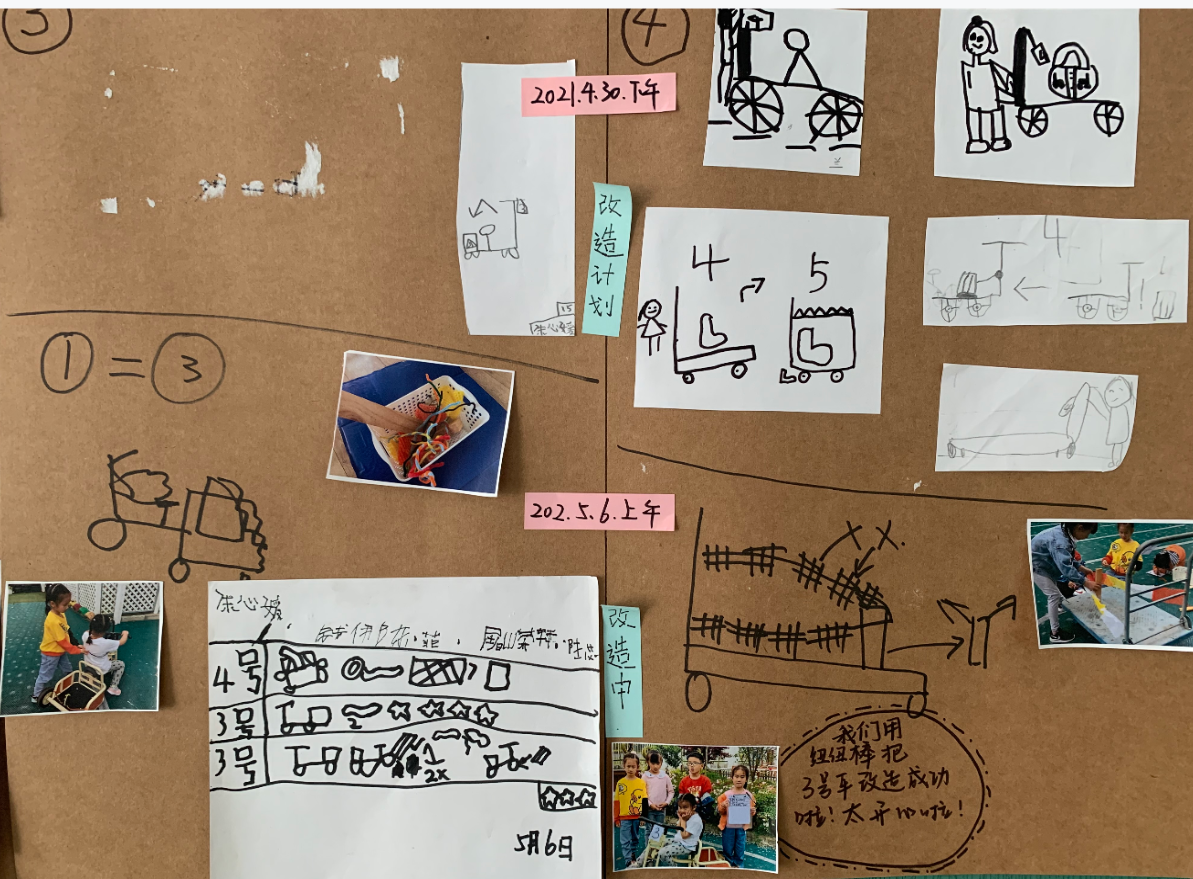 ③
④
2021.4.30.下午
改造计划
15
4
5
4
①=③
202.5.6.上午
改造中
朱心媛
4号
3号
3号
2X
5月6日
X X.
我们用
纽纽棒把
3号车改造成功
啦!太开心啦!